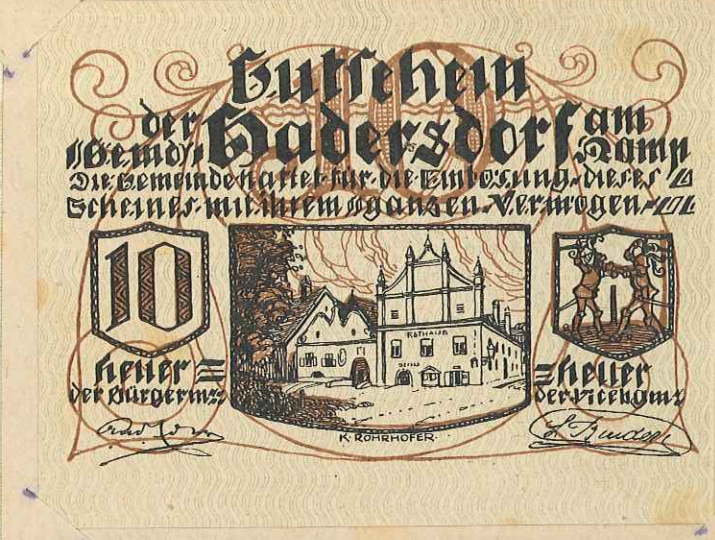 Gutschein
der Gemd. Hadersdorf am Kamp
Die Gemeinde haftet für die Einlösung dieses
Scheines mit ihrem ganzen Vermögen
10
10
RATHAUS
heller = = heller
der Bürgerm: der Vicebgm:
K. ROHRHOFER.